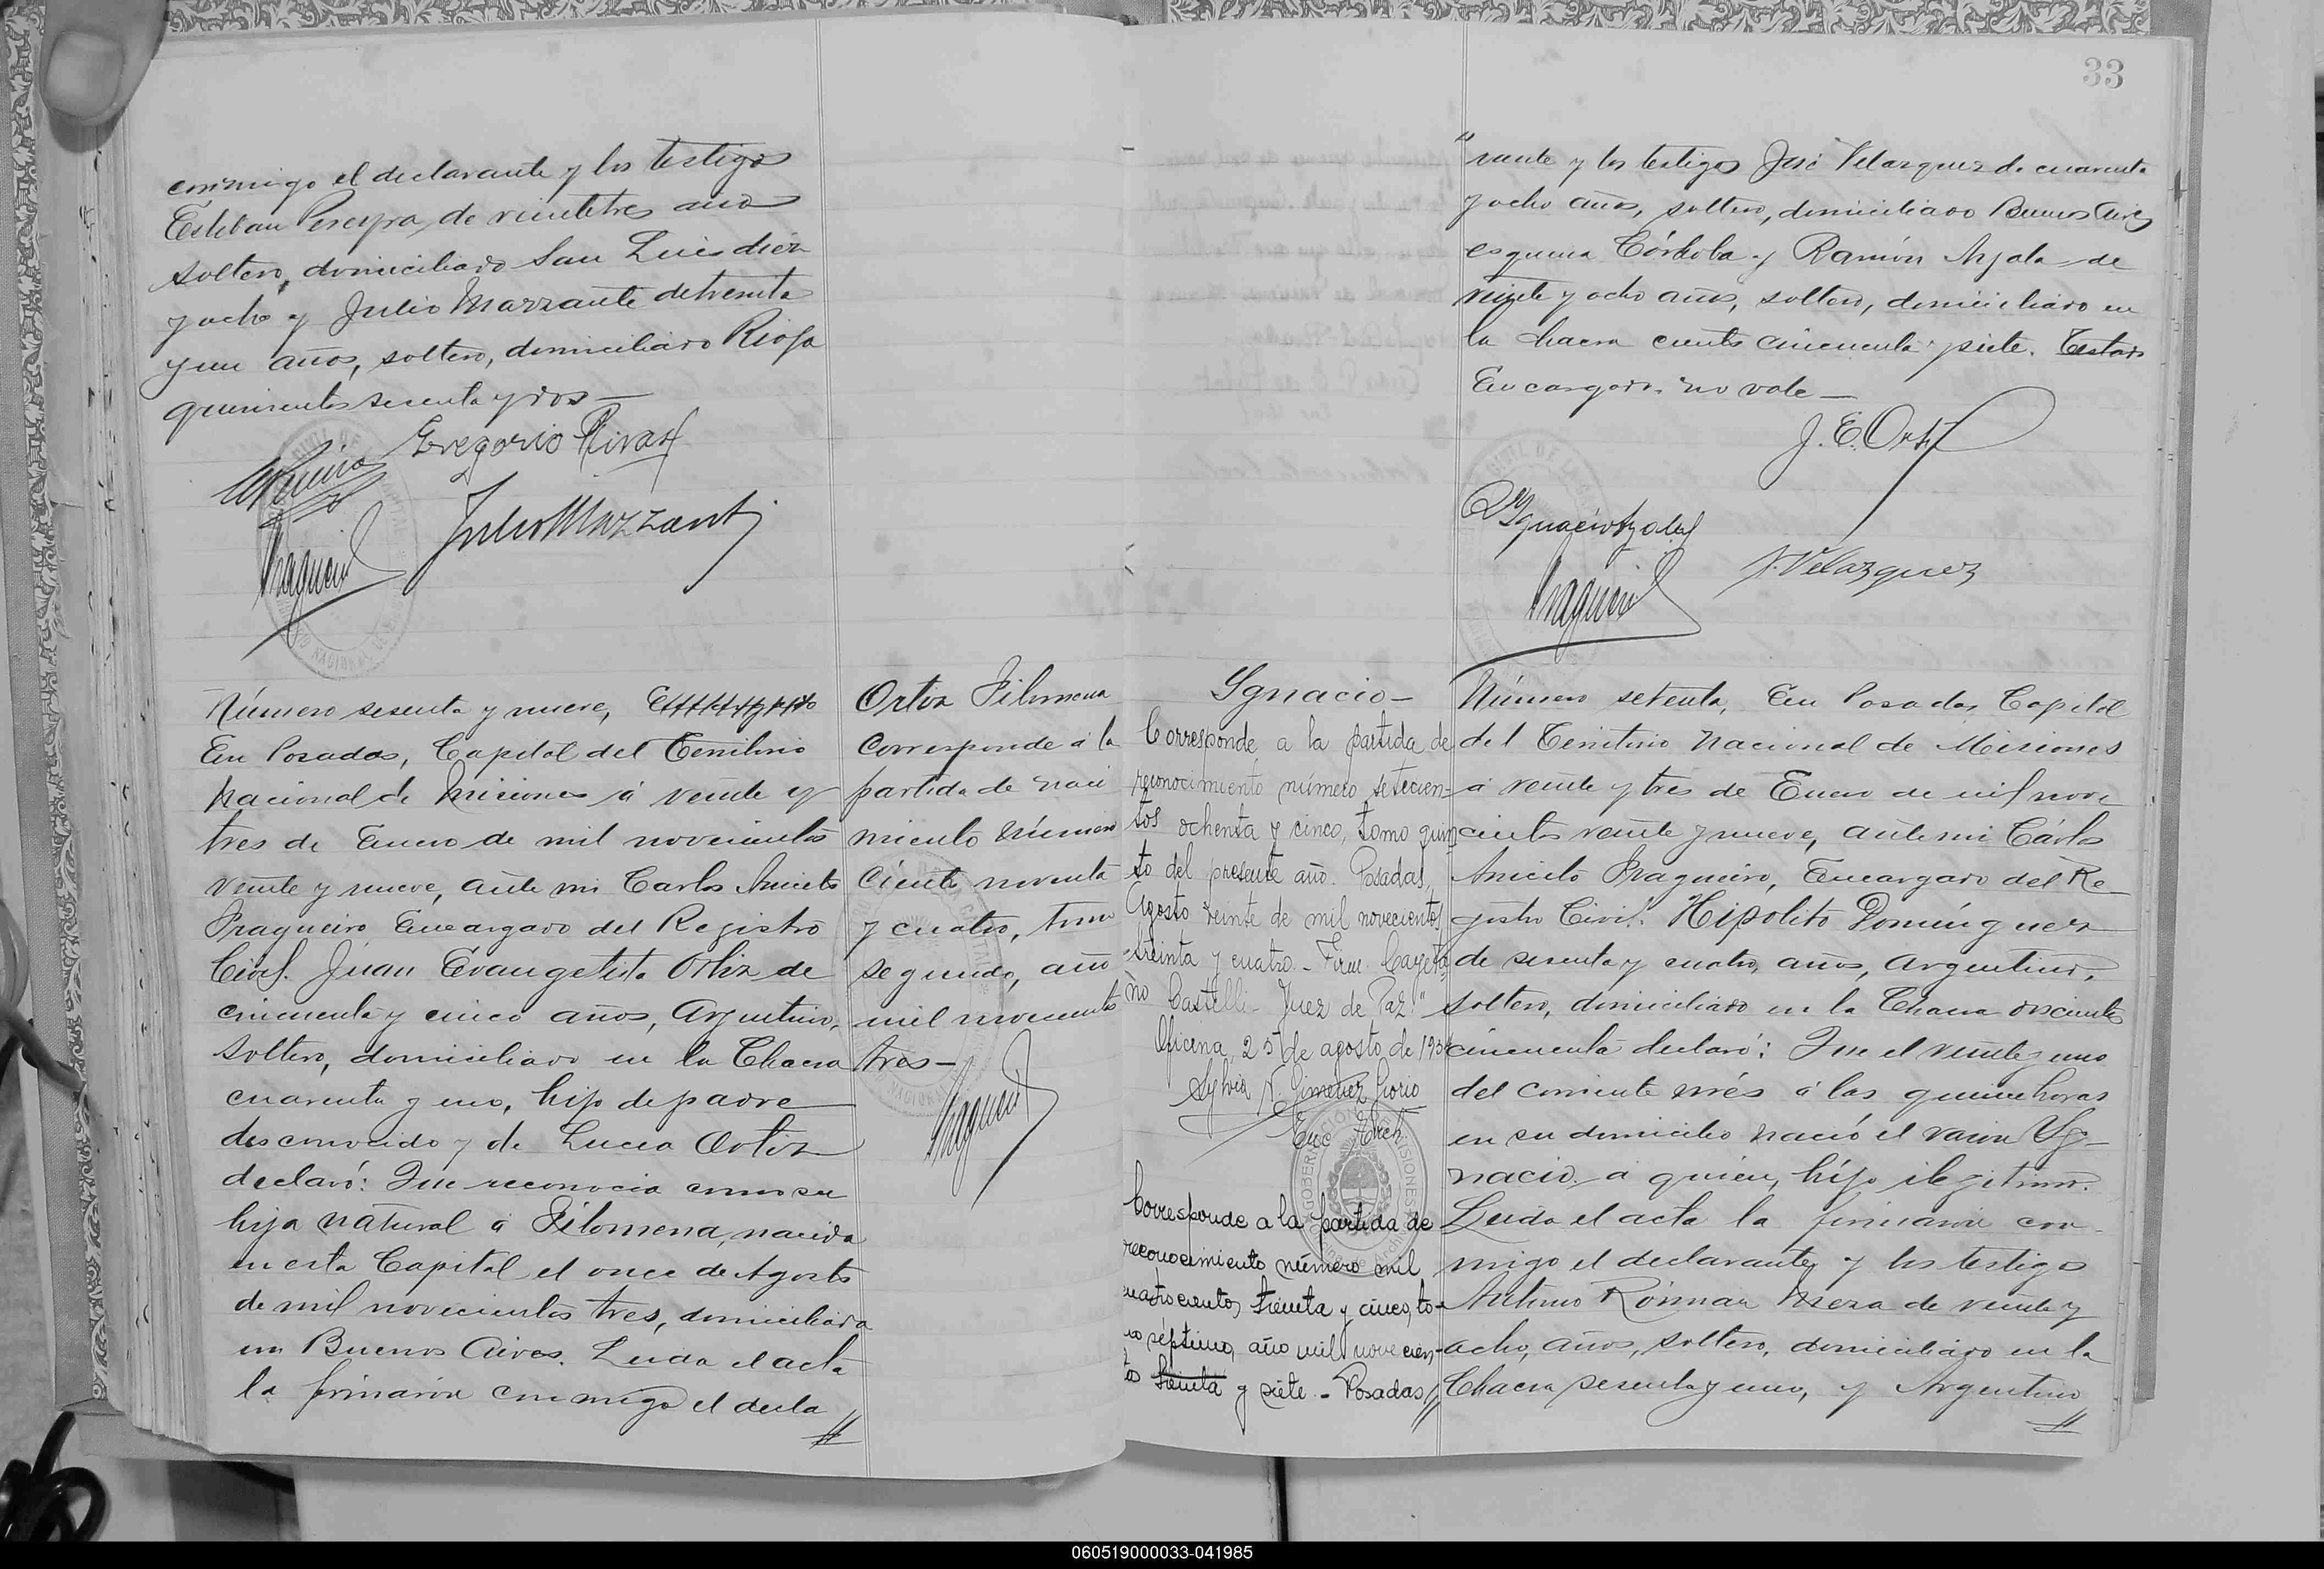 conmigo el declarante y los testigos
Esteban Pereyra, de veintitres años
soltero, domiciliado San Luis diez
y ocho y Julio Mazzante de treinta
y un años, soltero, domiciliado Rioja
quinientos sesenta y dos—
Gregorio Rivas
Julio Mazzanti
Número sesenta y nueve,
En Posadas, Capital del Territorio
Nacional de Misiones á veinte y
tres de Enero de mil novecientos
veinte y nueve, ante mi Carlos Aniceto
Fragueiro Encargado del Registro
Civil. Juan Evangelista Ortiz de
cincuenta y cinco años, Argentino,
soltero, domiciliado en la Chacra
cuarenta y uno, hijo de padre
desconocido y de Lucia Ortiz
declaró: Que reconocia como su
hija natural á Filomena, nacida
en esta Capital el once de Agosto
de mil novecientos tres, domiciliada
en Buenos Aires. Leida el acta
la firmaron conmigo el decla
//
Ortiz Filomena
Corresponde á la
partida de naci
miento número
ciento noventa
y cuatro, tomo
segundo, año
mil novecientos
tres—
33
"rante y los testigos José Velazquez de cuarenta
y ocho años, soltero, domiciliado Buenos Aires
esquina Córdoba y Ramón Ayala de
veinte y ocho años, soltero, domiciliado en
la chacra ciento cincuenta y siete. Testado
Encargado. no vale—
J. E. Ortiz
Ygnacio Ayala
J. Velazquez
Ygnacio—
Corresponde a la partida de
reconocimiento número setecien-
tos ochenta y cinco, tomo quin
to del presente año. Posadas,
Agosto veinte de mil novecientos
treinta y cuatro.- Firm. Cayeta
no Castelli - Juez de Paz."
Oficina, 25 de agosto de 1934
Sylvia A. Gimenez Giorio
Enc Arch
Corresponde a la partida de
reconocimiento número mil
cuatrocientos treinta y cinco, to-
mo séptimo, año mil novecien-
tos treinta y siete.- Posadas //
Número setenta, En Posadas Capital
del Territorio Nacional de Misiones
á veinte y tres de Enero de mil nove
cientos veinte y nueve, ante mi Cárlos
Aniceto Fragueiro, Encargado del Re-
gistro Civil. Hipolito Domínguez
de sesenta y cuatro, años, Argentino,
soltero, domiciliado en la Chacra doscientos
cincuenta declaró: Que el veinte y uno
del corriente més á las quince horas
en su domicilio nació el varon Yg-
nacio. a quien, hijo ilegitimo.
Leida el acta la firmaron con-
migo el declarante y los testigos
Antonio Román Meza de veinte y
ocho, años, soltero, domiciliado en la
Chacra sesenta y uno, y Argentino
//
060519000033-041985